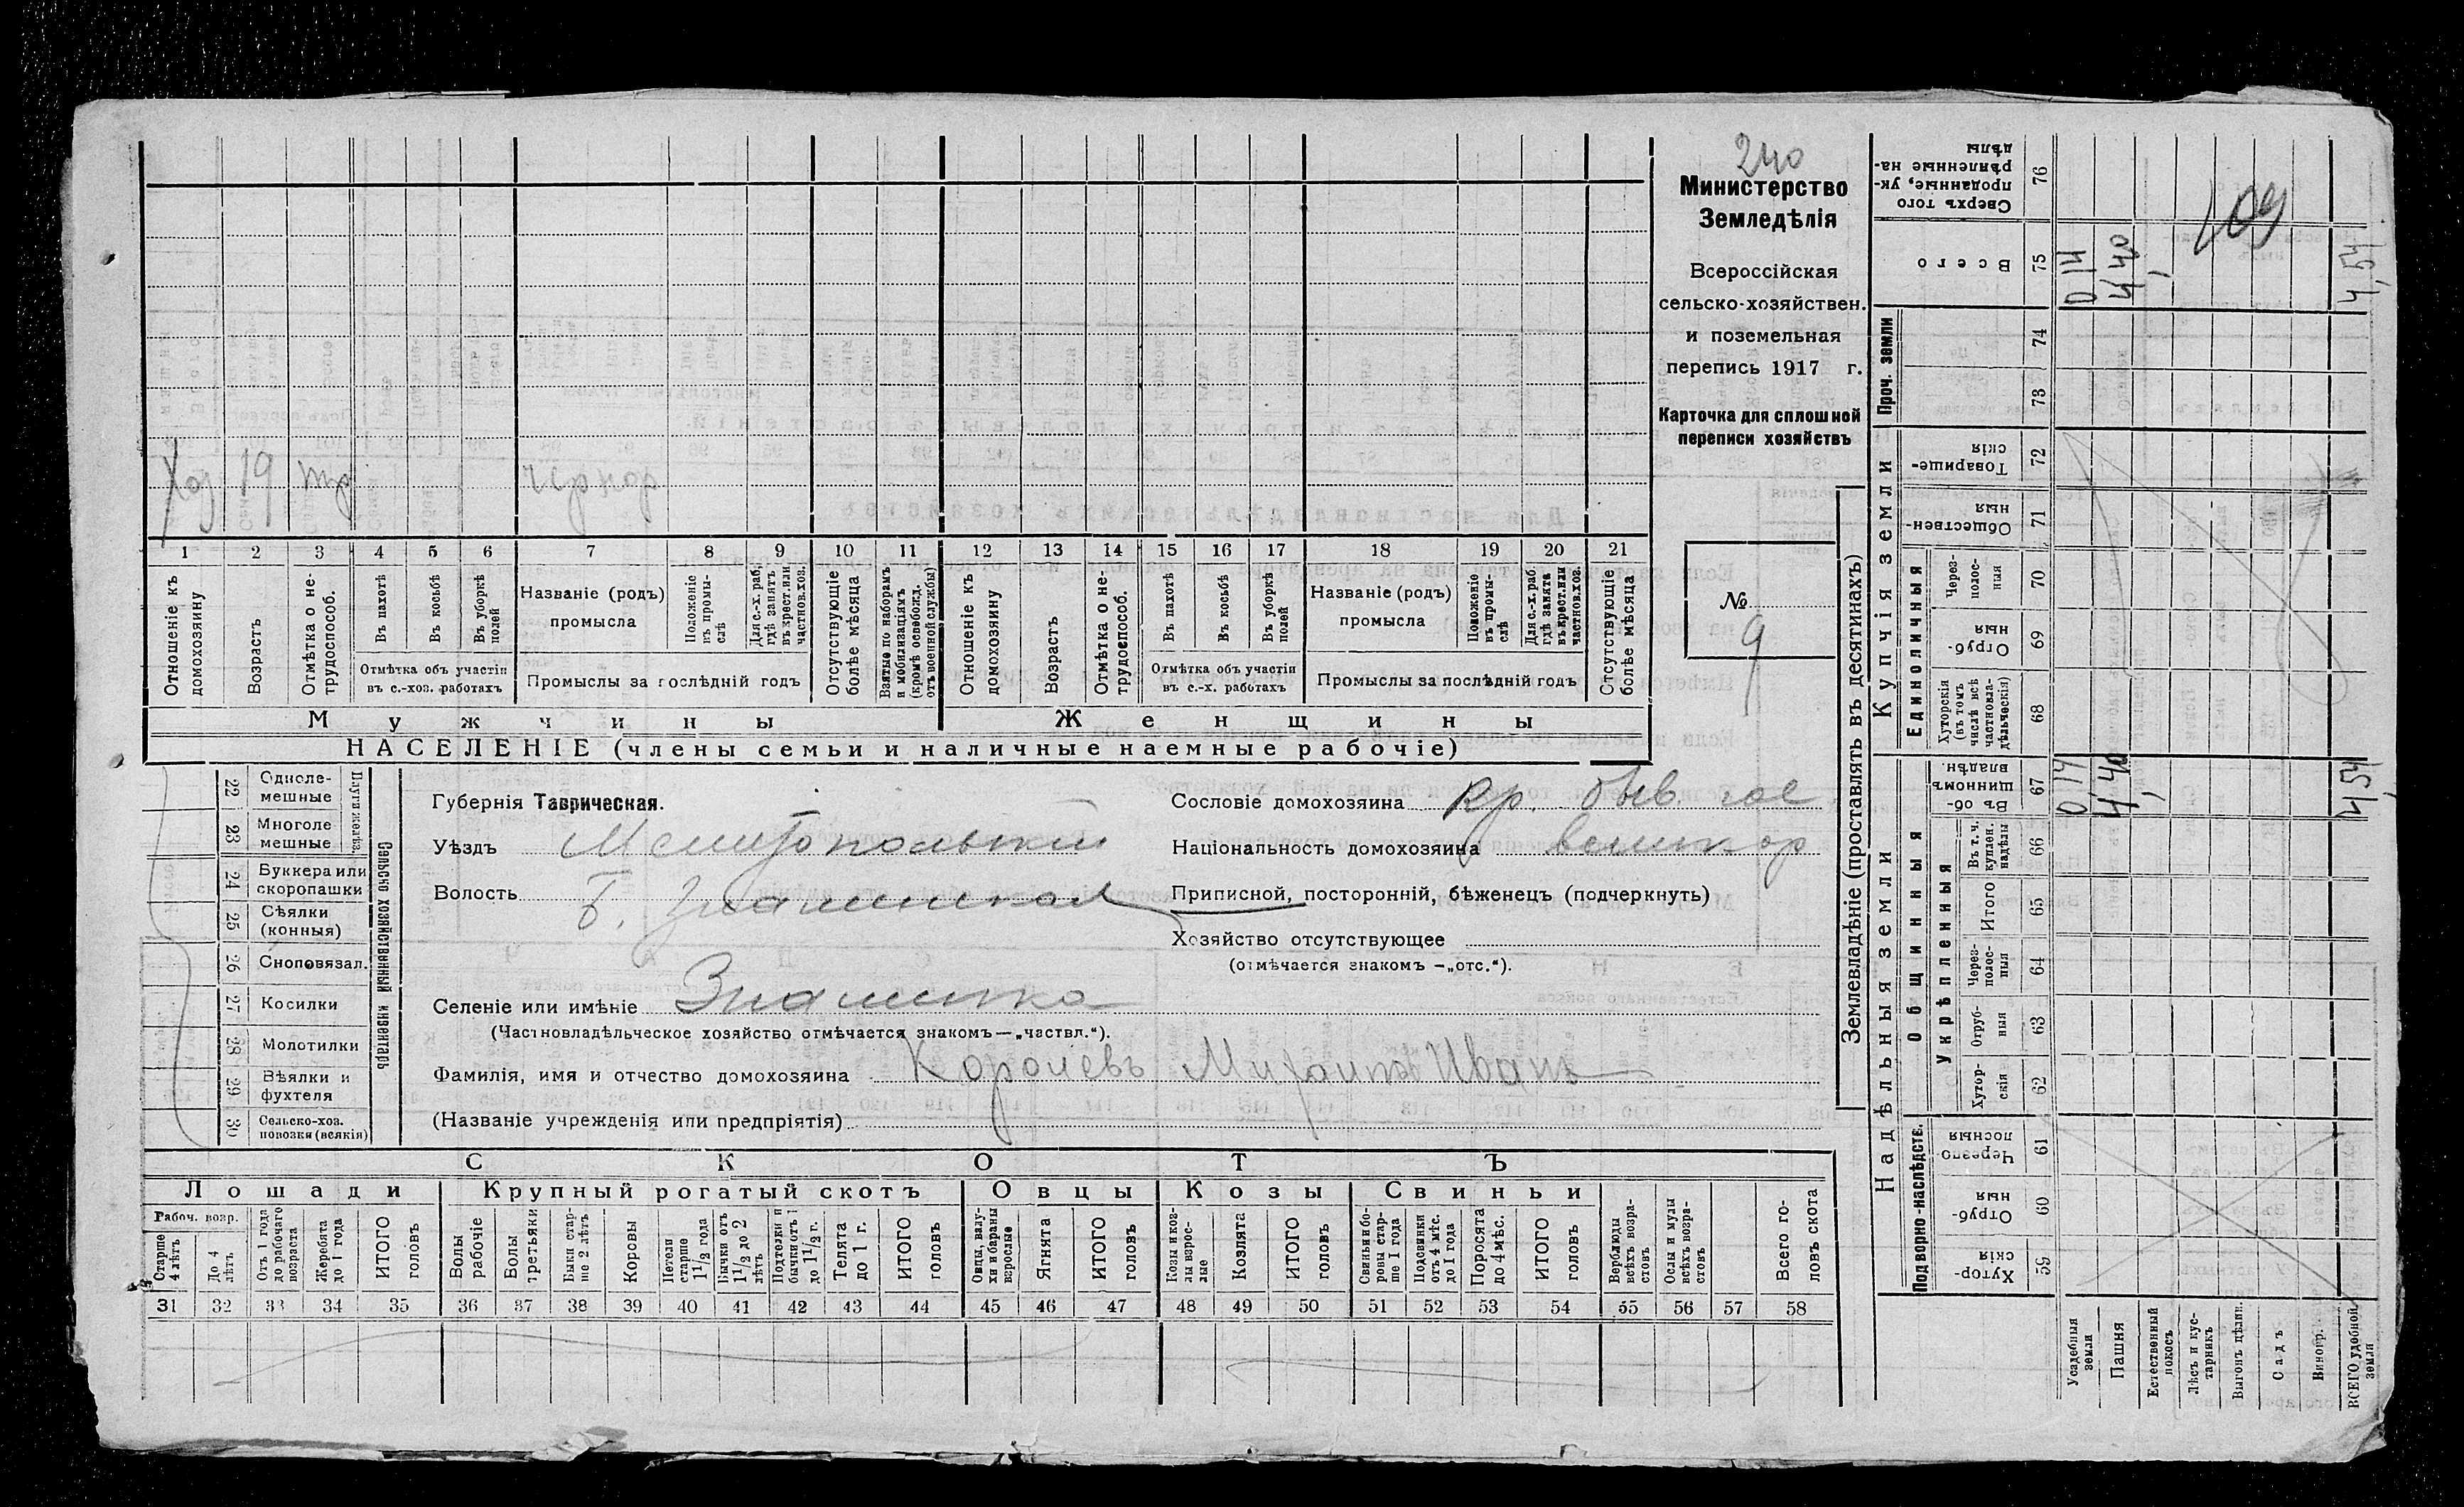 240
Министерство
Земледѣлія
Всероссійская
сельско-хозяйствен.
и поземельная
перепись 1917 г.
Карточка для сплошной
переписи хозяйствъ
№
9
Хоз 19
1 2 3 4 5 6 7 8 9 10 11 12 13 14 15 16 17 18 19 20 21
Отношеніе къ домохозяину
Возрастъ
Отмѣтка о не-трудоспособ.
Въ пахотѣ
Въ косьбѣ
Въ уборкѣ полей
Отмѣтка объ участіи
въ с.-хоз. работахъ
Названіе (родъ)
промысла
Положеніе въ промы-слѣ
Для с.-х. раб. гдѣ занятъ въ крест. или частнов. хоз.
Промыслы за послѣдній годъ
Отсутствующіе болѣе мѣсяца
Взятые по наборамъ и мобилизаціямъ (кромѣ освобожд. отъ военной службы)
Отношеніе къ домохозяину
Возрастъ
Отмѣтка о не-трудоспособ.
Въ пахотѣ
Въ косьбѣ
Въ уборкѣ полей
Отмѣтка объ участіи
въ с.-х. работахъ
Названіе (родъ)
промысла
Положеніе въ промы-слѣ
Для с.-х. раб. гдѣ занята въ крест. или частнов. хоз.
Промыслы за послѣдній годъ
Отсутствующіе болѣе мѣсяца
Мужчины Женщины
НАСЕЛЕНІЕ (члены семьи и наличные наемные рабочіе)
22 Одноле-мешные
23 Многоле мешные
Плуги желѣз.
24 Буккера или скоропашки
25 Сѣялки (конныя)
26 Сноповязал.
27 Косилки
28 Молотилки
29 Вѣялки и фухтеля
30 Сельско-хоз. повозки (всякія)
Сельско хозяйственный инвентарь
Губернія Таврическая.
Уѣздъ Мелитопольскій
Волость Б. Знаменская
Селеніе или имѣніе Знаменка
(Частновладѣльческое хозяйство отмѣчается знакомъ — „частвл.“).
Фамилія, имя и отчество домохозяина Королевъ Иванъ
(Названіе учрежденія или предпріятія)
Сословіе домохозяина кр. быв. гос
Національность домохозяина великор
Приписной, посторонній, бѣженецъ (подчеркнуть)
Хозяйство отсутствующее
(отмѣчается знакомъ — „отс.“).
СКОТЪ
Лошади Крупный рогатый скотъ Овцы Козы Свиньи
Рабоч. возр.
Старше 4 лѣтъ
До 4 лѣтъ
Отъ 1 года до рабочаго возраста
Жеребята до 1 года
ИТОГО головъ
Волы рабочіе
Волы третьяки
Быки стар-ше 2 лѣтъ
Коровы
Нетели старше 1 1/2 года
Бычки отъ 1 1/2 до 2 лѣтъ
Подтелки и бычки отъ 1 до 1 1/2 г.
Телята до 1 г.
ИТОГО головъ
Овцы, валу-хи и бараны взрослые
Ягнята
ИТОГО головъ
Козы и коз-лы взрос-лые
Козлята
ИТОГО головъ
Свиньи и бо-ровы стар-ше 1 года
Подсвинки отъ 4 мѣс. до 1 года
Поросята до 4 мѣс.
ИТОГО головъ
Верблюды всѣхъ возра-стовъ
Ослы и мулы всѣхъ возра-стовъ
Всего го-ловъ скота
31 32 33 34 35 36 37 38 39 40 41 42 43 44 45 46 47 48 49 50 51 52 53 54 55 56 57 58
Землевладѣніе (проставлять въ десятинахъ)
Надѣльныя земли Купчія земли Проч. земли
Подворно-наслѣдств.
Общинныя
Укрѣпленныя
Единоличныя
Хутор-скія 59
Отруб-ныя 60
Черезпо-лосныя 61
Хутор-скія 62
Отруб-ныя 63
Через-полос-ныя 64
Итого 65
Въ т. ч. куплен. надѣлы 66
Въ об-щинномъ владѣн. 67
Хуторскія (въ томъ числѣ всѣ частновла-дѣльческія) 68
Отруб-ныя 69
Через-полос-ныя 70
Обществен-ныя 71
Товарище-скія 72
73
74
Всего 75
Сверхъ того проданные, ук-рѣпленные на-дѣлы 76
0,14
4,40
4,54
0,14
4,40
4,54
Усадебныя земли
Пашня
Естественный покосъ
Лѣсъ и кус-тарникъ
Выгонъ цѣлин.
Садъ
Виногр.
ВСЕГО удобной земли